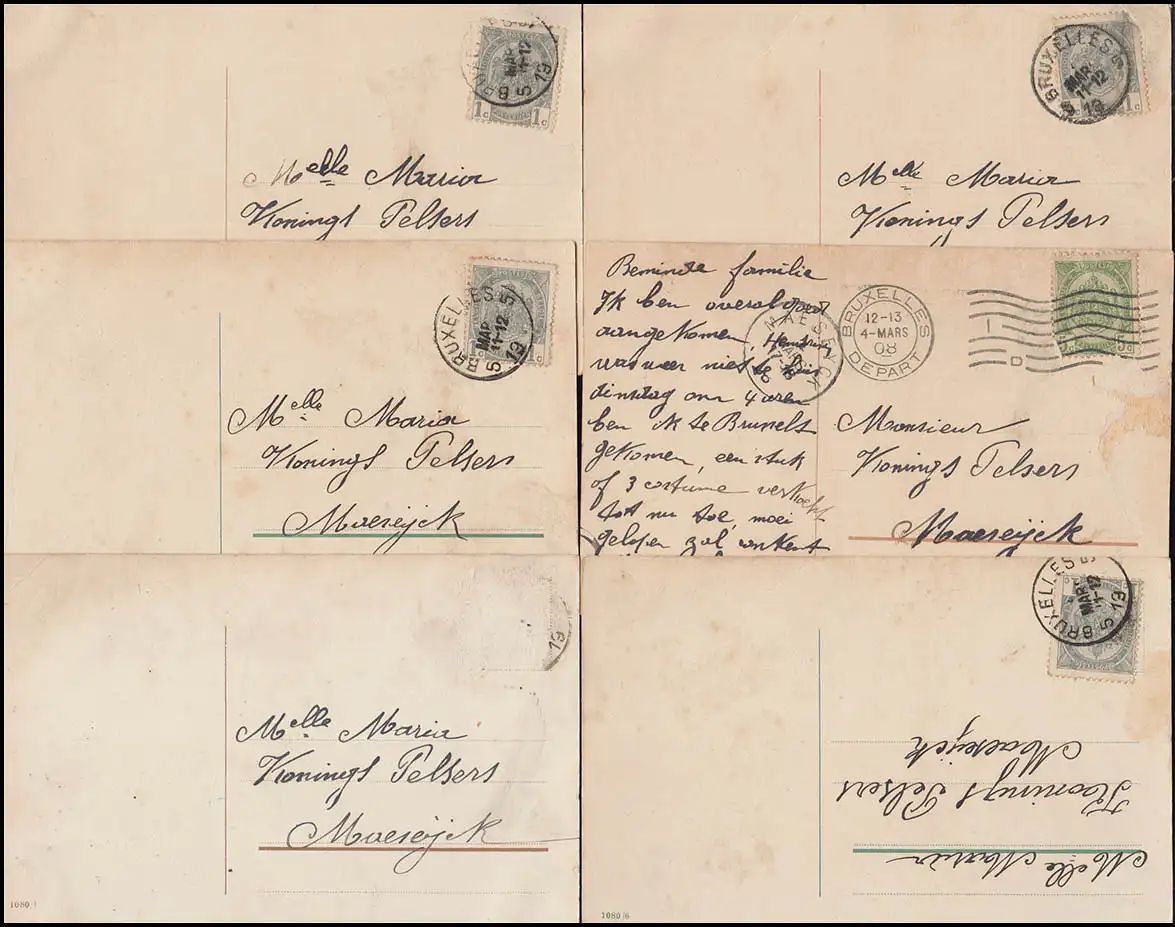 BRUXELLES 5
MAR
11-12
5 19
1c 1c
Melle Maria
Konings Pelsers
BRUXELLES 5
MAR
11-12
5 19
1c
Melle Maria
Konings Pelsers
BRUXELLES 5
MAR
11-12
5 19
1c 1c
Melle Maria
Konings Pelsers
Maeseijck
Beminde familie
Ik ben overal goed
aangekomen,
was weer niet te
dinsdag om 4 uren
ben ik te Brussels
gekomen, een stuk
of 3 costume verkocht
tot nu toe, moei
gelopen
MAESEYCK
17-18
BRUXELLES
12-13
4-MARS
08
DEPART
D
Monsieur
Konings Pelsers
Maeseijck
19
Melle Maria
Konings Pelsers
Maeseijck
1080/1
BRUXELLES 5
MAR
11-12
5 19
Melle Maria
Konings Pelsers
Maeseijck
1080/6